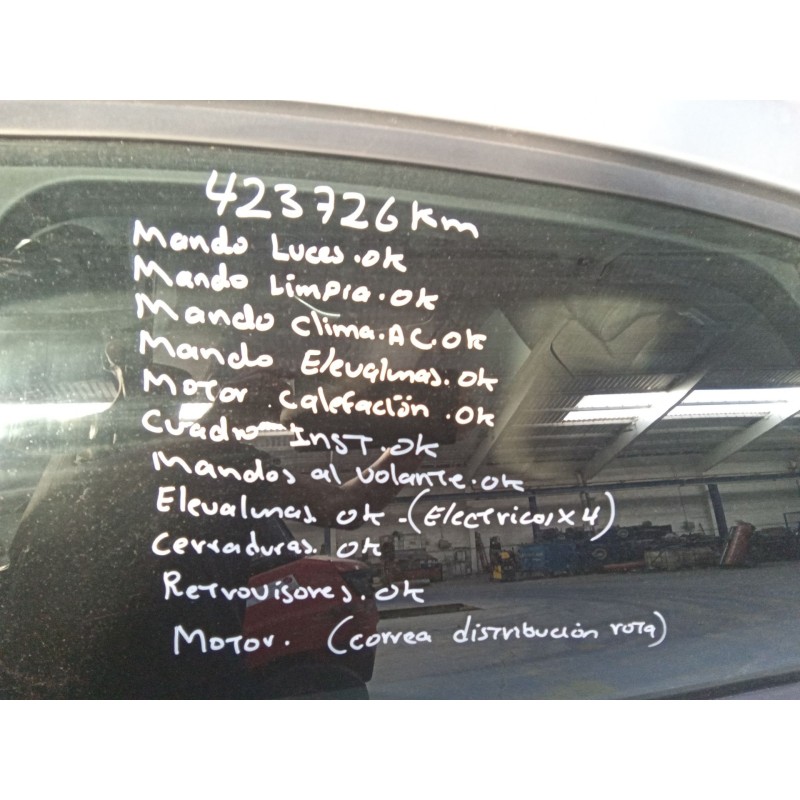 423726 km
Mando Luces.ok
Mando Limpia.ok
Mando Clima.AC.ok
Mando Elevalunas.ok
Motor.Calefación.ok
Cuadro INST.ok
Mandos al volante.ok
Elevalunas ok - (Electricos x 4)
Cerraduras. ok
Retrovisores.ok
Motor. (correa distribución rota)